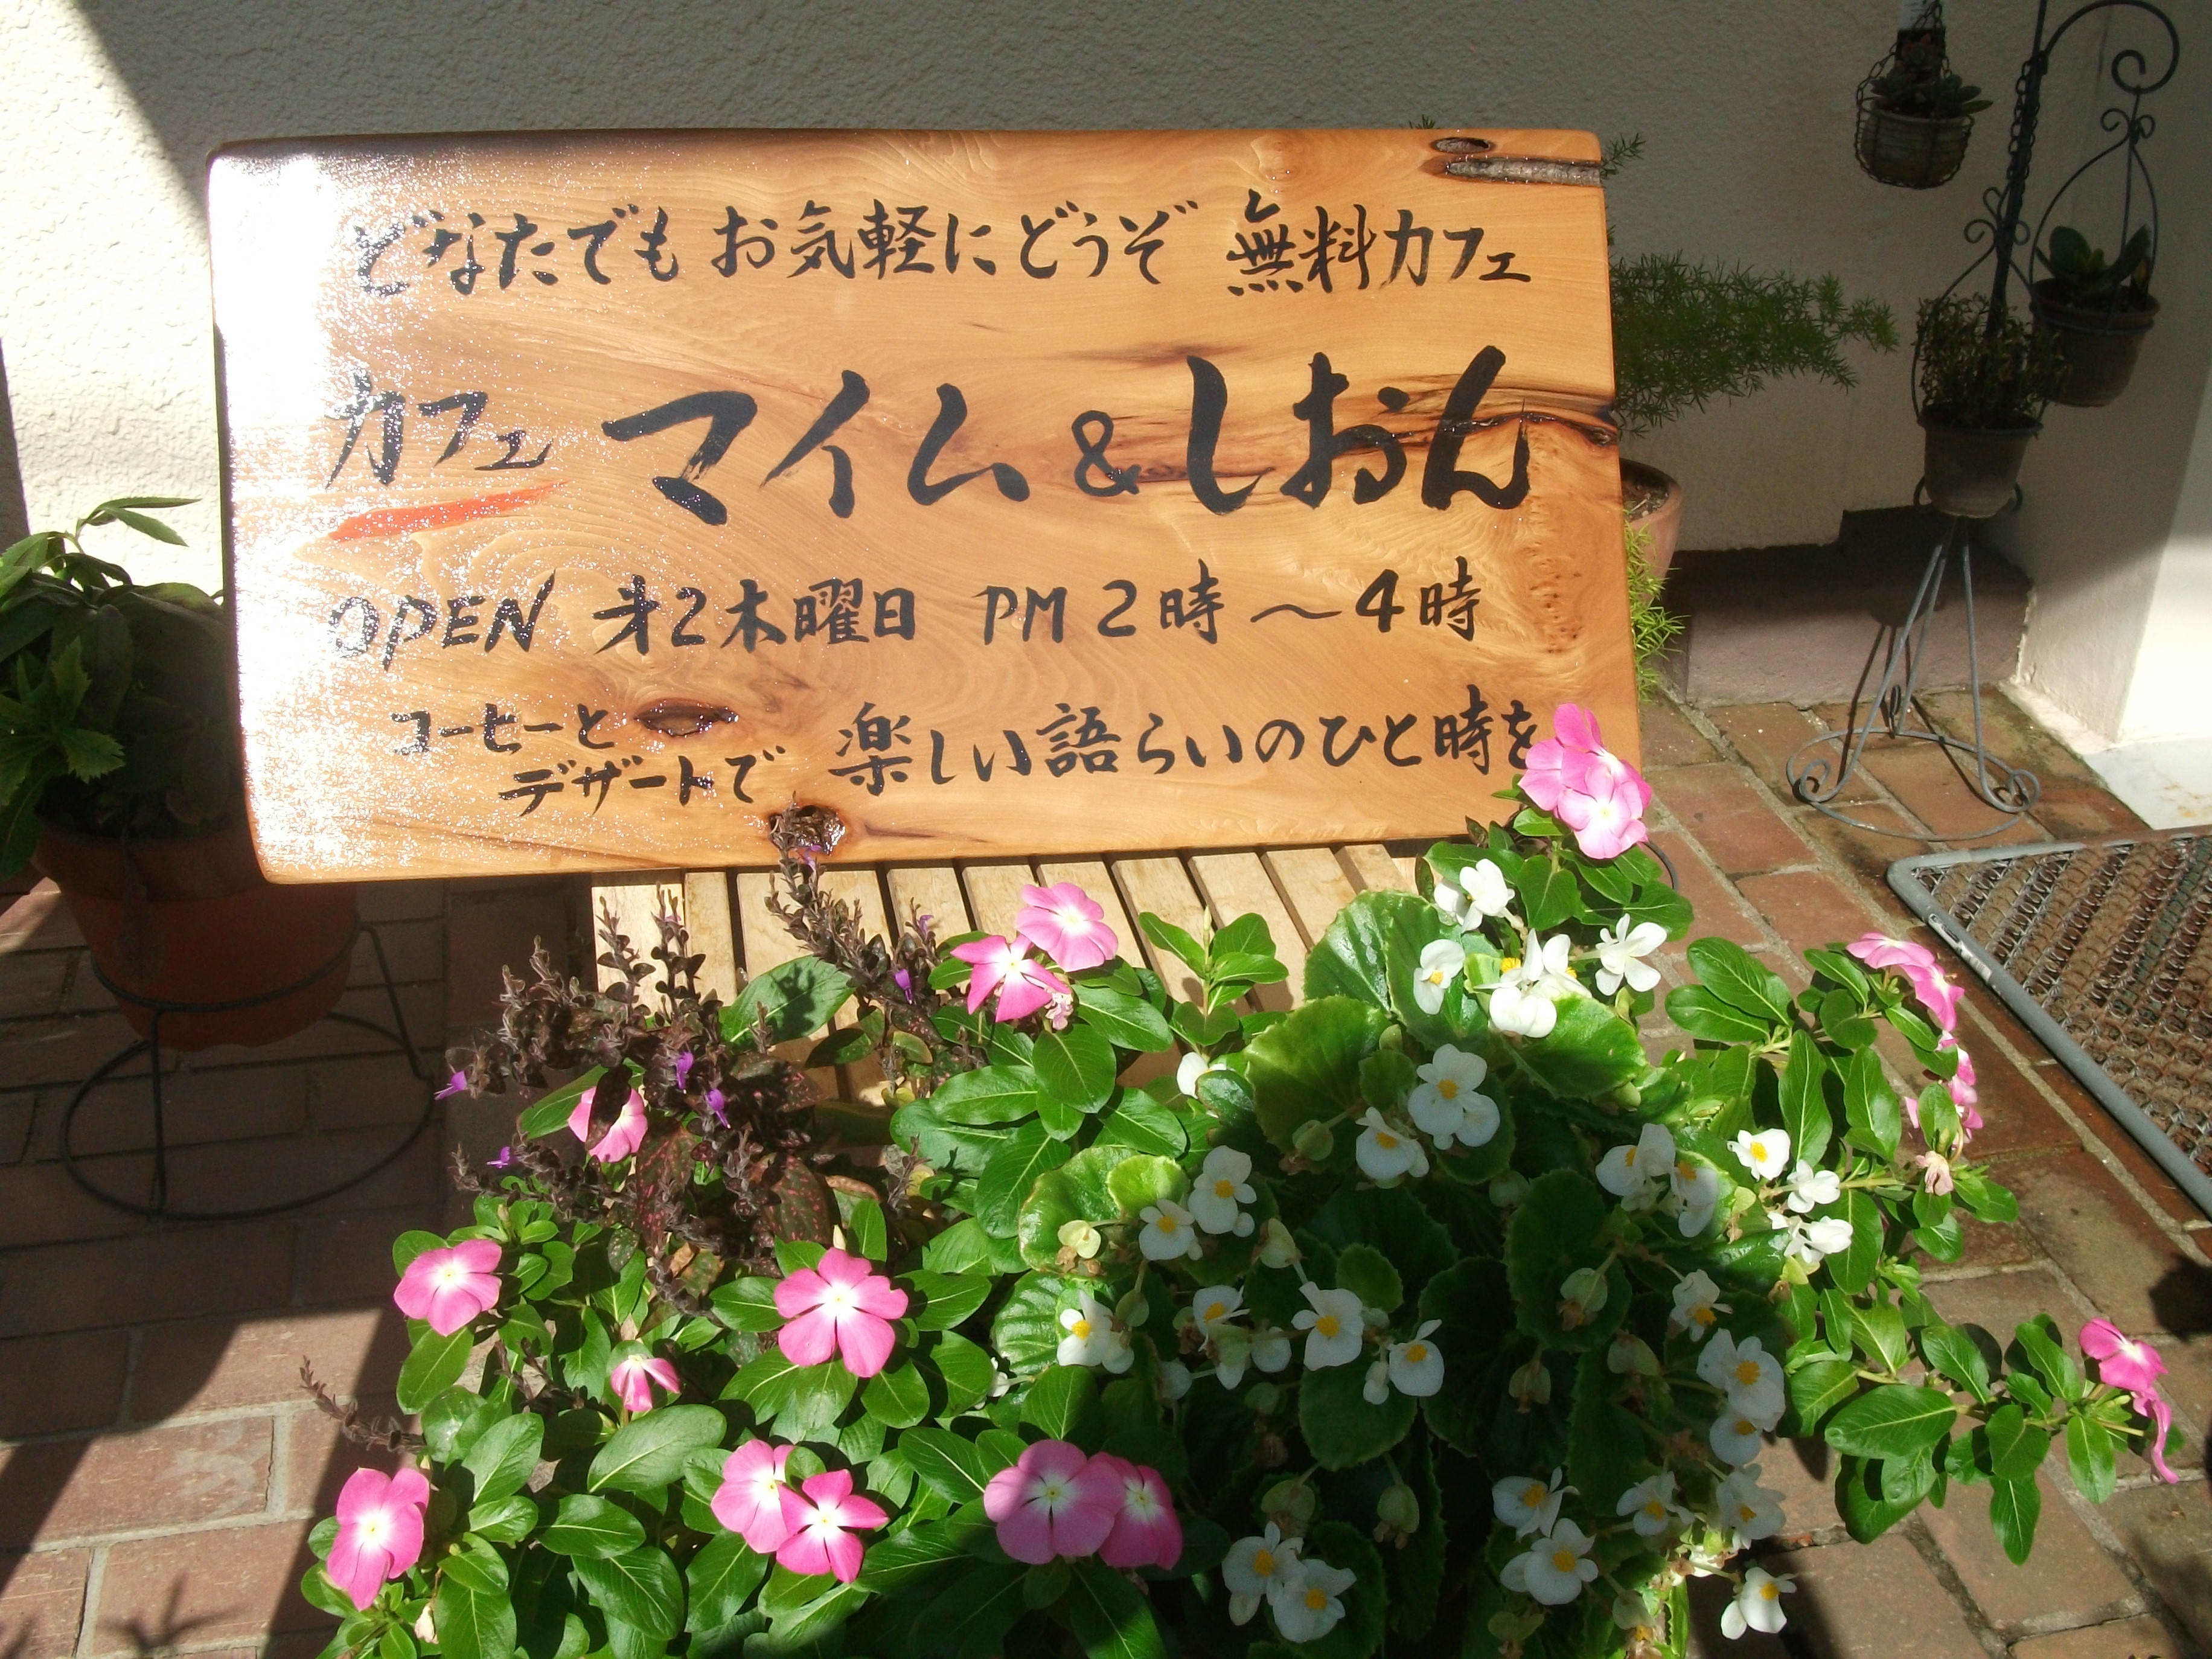 どなたでもお気軽にどうぞ 無料カフェ
カフェ マイム&しおん
OPEN 才2木曜日 PM2時〜4時
コーヒーと
デザートで 楽しい語らいのひと時を